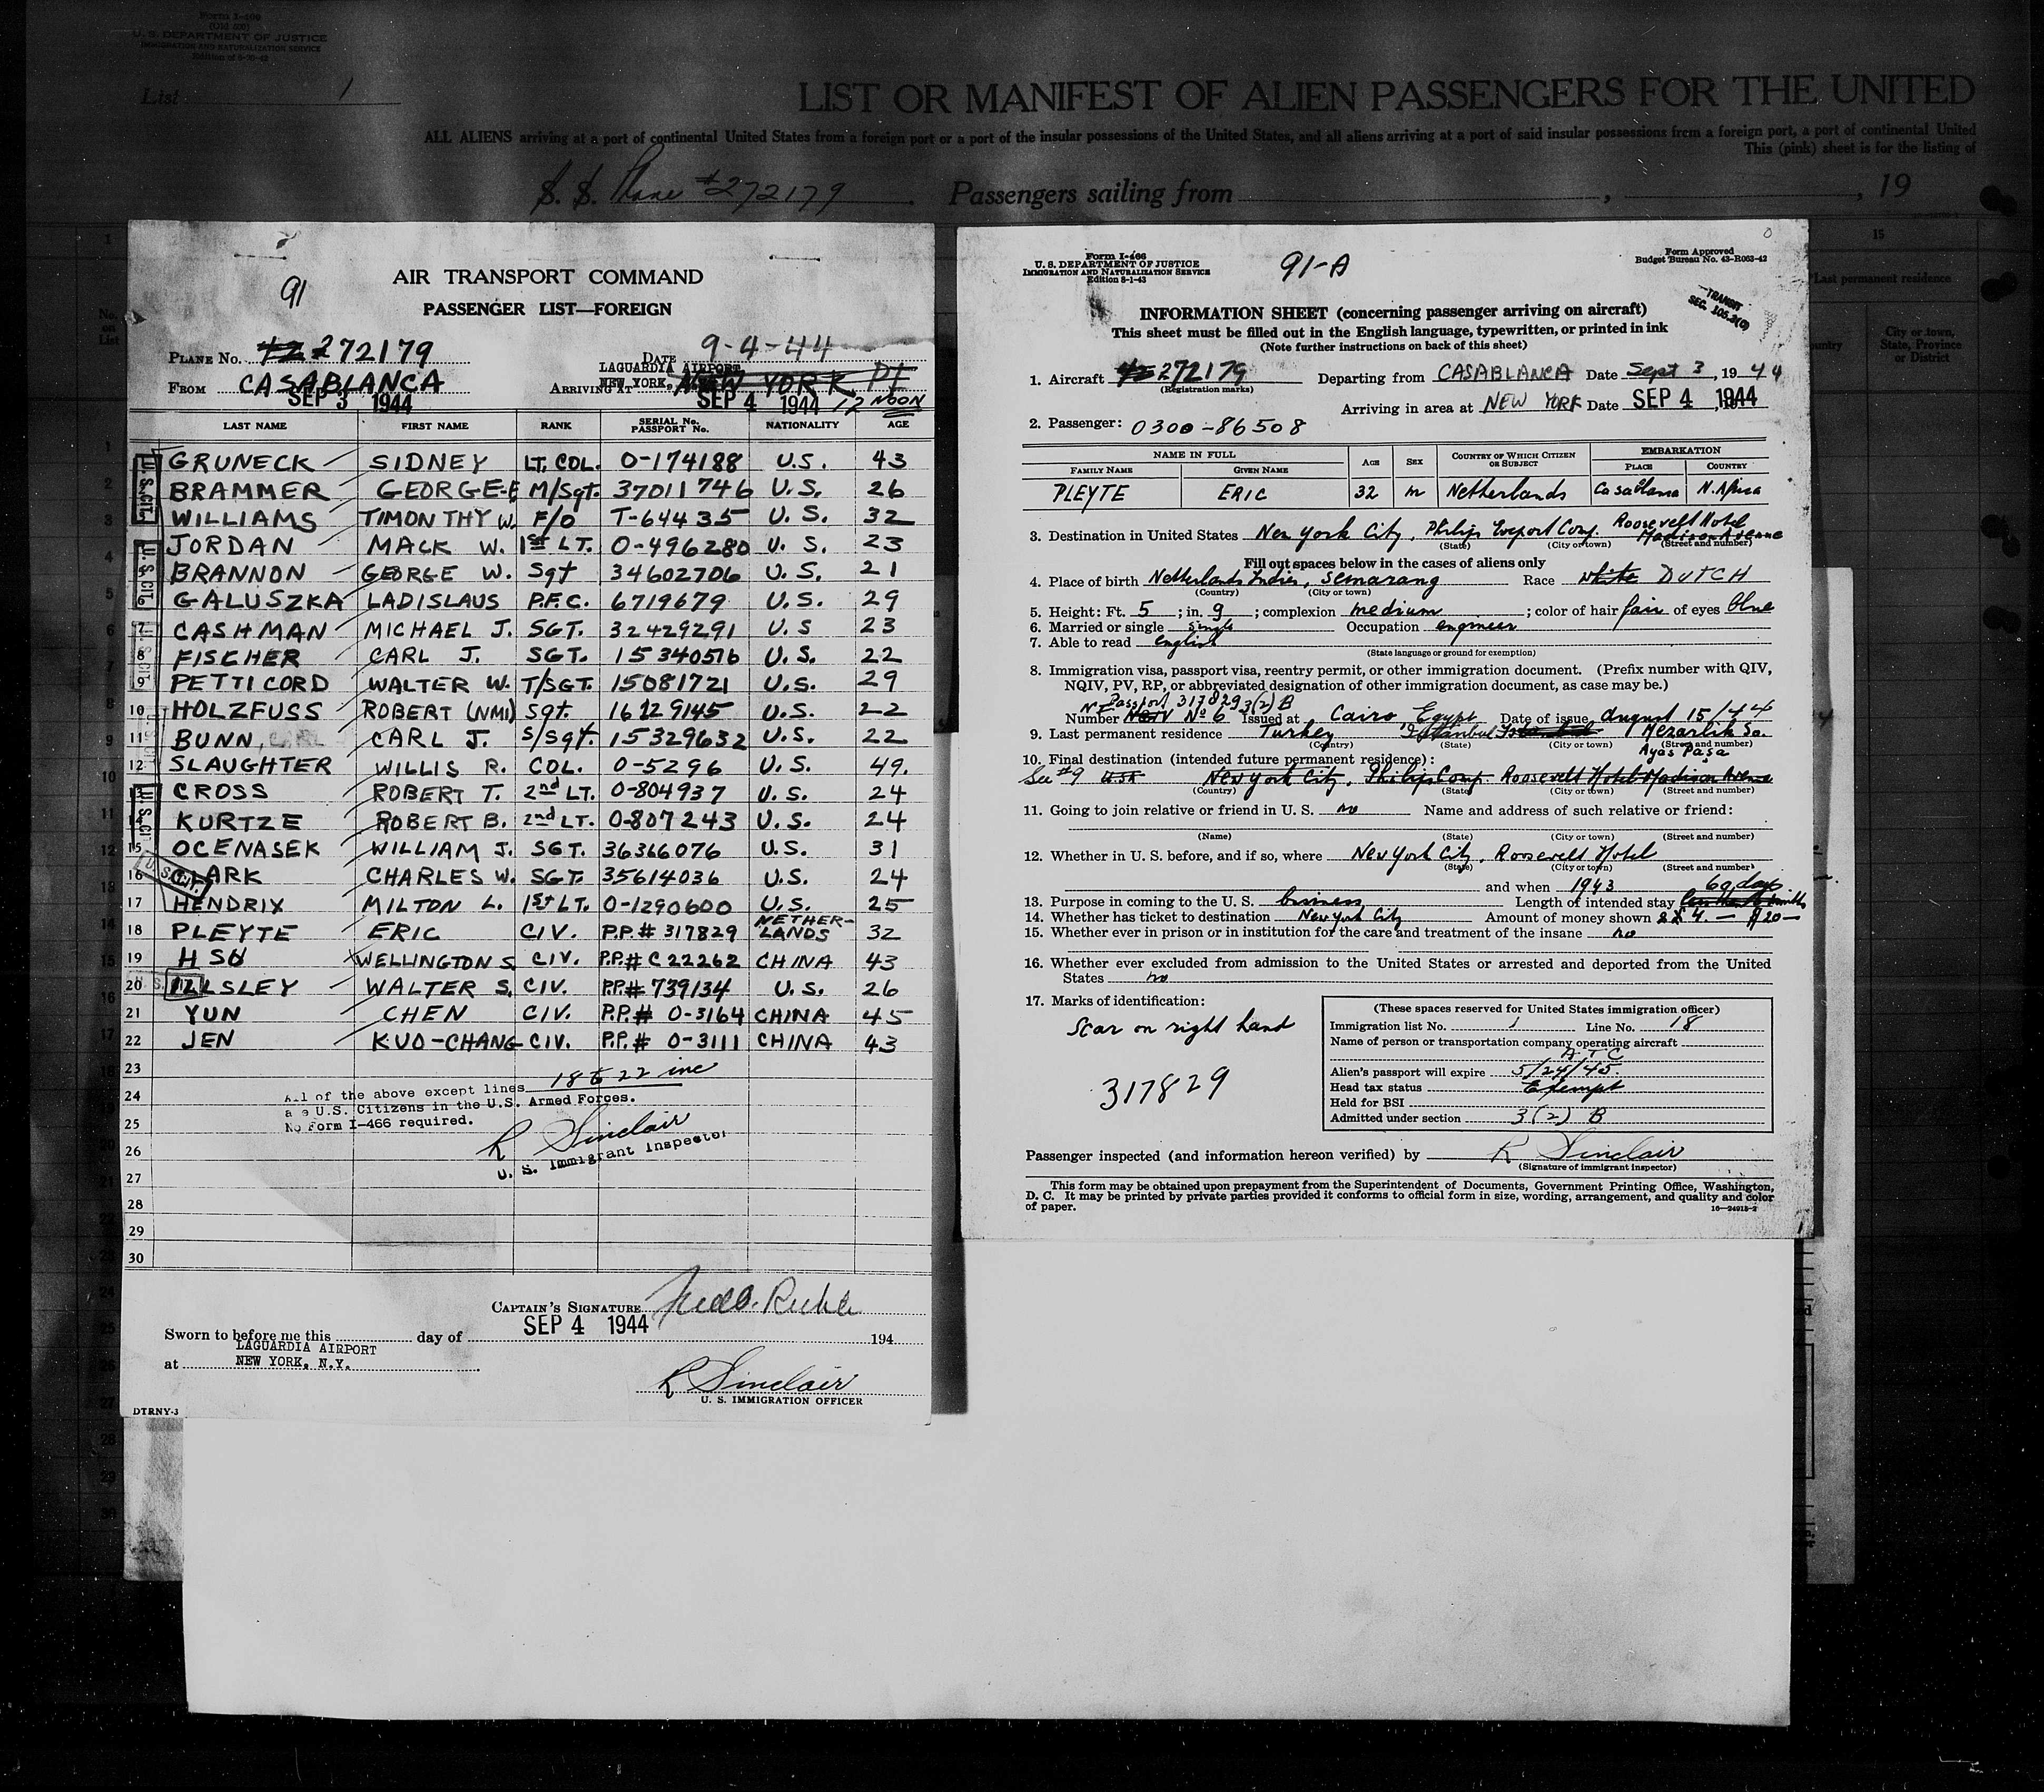 Form I-466
(Old 600)
U. S. DEPARTMENT OF JUSTICE
IMMIGRATION AND NATURALIZATION SERVICE
List 1
LIST OR MANIFEST OF ALIEN PASSENGERS FOR THE UNITED
ALL ALIENS arriving at a port of continental United States from a foreign port or a port of the insular possessions of the United States, and all aliens arriving at a port of said insular possessions from a foreign port, a port of continental United
This (pink) sheet is for the listing of
S. S. Plane #272179 Passengers sailing from , , 19
91
AIR TRANSPORT COMMAND
PASSENGER LIST—FOREIGN
PLANE No. 272179 DATE 9-4-44
FROM CASABLANCA ARRIVING AT LAGUARDIA AIRPORT NEW YORK, NEW YORK
SEP 3 1944 SEP 4 1944 12 NOON
LAST NAME FIRST NAME RANK SERIAL No. PASSPORT No. NATIONALITY AGE
1 GRUNECK SIDNEY LT. COL. O-174188 U.S. 43
2 BRAMMER GEORGE-E M/Sgt. 37011746 U.S. 26
3 WILLIAMS TIMONTHY W. F/O T-64435 U.S. 32
4 JORDAN MACK W. 1st LT. O-496280 U.S. 23
5 BRANNON GEORGE W. Sgt 34602706 U.S. 21
6 GALUSZKA LADISLAUS P.F.C. 6719679 U.S. 29
7 CASHMAN MICHAEL J. SGT. 32429291 U.S 23
8 FISCHER CARL J. SGT. 15340516 U.S. 22
9 PETTICORD WALTER W. T/SGT. 15081721 U.S. 29
10 HOLZFUSS ROBERT (NMI) Sgt. 16129145 U.S. 22
11 BUNN, CARL J. S/Sgt. 15329632 U.S. 22
12 SLAUGHTER WILLIS R. COL. O-5296 U.S. 49.
13 CROSS ROBERT T. 2nd LT. O-804937 U.S. 24
14 KURTZE ROBERT B. 2nd LT. O-807243 U.S. 24
15 OCENASEK WILLIAM J. SGT. 36366076 U.S. 31
16 CLARK CHARLES W. SGT. 35614036 U.S. 24
17 HENDRIX MILTON L. 1st LT. O-1290600 U.S. 25
18 PLEYTE ERIC CIV. P.P.# 317829 NETHER-LANDS 32
19 HSU WELLINGTON S. CIV. P.P.# C 22262 CHINA 43
20 ILLSLEY WALTER S. CIV. P.P.# 739134 U.S. 26
21 YUN CHEN CIV. P.P.# O-3164 CHINA 45
22 JEN KUO-CHANG CIV. P.P.# O-3111 CHINA 43
23
24
25
26
27
28
29
30
All of the above except lines 18 to 22 inc
are U.S. Citizens in the U.S. Armed Forces.
No Form I-466 required.
R Sinclair
U. S. Immigrant Inspector
CAPTAIN'S SIGNATURE
SEP 4 1944
Sworn to before me this day of 194
LAGUARDIA AIRPORT
at NEW YORK, N.Y.
R Sinclair
U. S. IMMIGRATION OFFICER
DTRNY-3
Form I-466
U. S. DEPARTMENT OF JUSTICE
IMMIGRATION AND NATURALIZATION SERVICE
Edition 8-1-43
91-A
Form Approved
Budget Bureau No. 43-R063-42
TRANSIT
SEC. 105.3(c)
INFORMATION SHEET (concerning passenger arriving on aircraft)
This sheet must be filled out in the English language, typewritten, or printed in ink
(Note further instructions on back of this sheet)
1. Aircraft 272179 Departing from CASABLANCA Date Sept 3, 1944
(Registration marks)
Arriving in area at NEW YORK Date SEP 4 1944
2. Passenger: 0300-86508
NAME IN FULL AGE SEX COUNTRY OF WHICH CITIZEN OR SUBJECT EMBARKATION
FAMILY NAME GIVEN NAME PLACE COUNTRY
PLEYTE ERIC 32 m Netherlands Casablanca N. Africa
3. Destination in United States New York City, Philips Export Comp. Roosevelt Hotel Madison Avenue
(State) (City or town) (Street and number)
Fill out spaces below in the cases of aliens only
4. Place of birth Netherlands Indies, Semarang Race white DUTCH
(Country) (City or town)
5. Height: Ft. 5 ; in. 9 ; complexion medium ; color of hair fair of eyes blue
6. Married or single single Occupation engineer
7. Able to read english
(State language or ground for exemption)
8. Immigration visa, passport visa, reentry permit, or other immigration document. (Prefix number with QIV,
NQIV, PV, RP, or abbreviated designation of other immigration document, as case may be.)
Passport 317829 3(2) B
Number No 6 Issued at Cairo Egypt Date of issue august 15/44
9. Last permanent residence Turkey Istanbul 1 Mezarlik So. Ayas Pasa
(Country) (State) (City or town) (Street and number)
10. Final destination (intended future permanent residence):
See #9 USA New York City, Philips Comp. Roosevelt Hotel Madison Avenue
(Country) (State) (City or town) (Street and number)
11. Going to join relative or friend in U. S. no Name and address of such relative or friend:
(Name) (State) (City or town) (Street and number)
12. Whether in U. S. before, and if so, where New York City, Roosevelt Hotel
(State) (City or town) (Street and number)
and when 1943 60 days
13. Purpose in coming to the U. S. business Length of intended stay
14. Whether has ticket to destination New York City Amount of money shown £ 4. — $20 —
15. Whether ever in prison or in institution for the care and treatment of the insane no
16. Whether ever excluded from admission to the United States or arrested and deported from the United
States no
17. Marks of identification:
Scar on right hand
317829
(These spaces reserved for United States immigration officer)
Immigration list No. 1 Line No. 18
Name of person or transportation company operating aircraft
A T C
Alien's passport will expire 5/24/45.
Head tax status Exempt
Held for BSI
Admitted under section 3(2) B
Passenger inspected (and information hereon verified) by R Sinclair
(Signature of immigrant inspector)
This form may be obtained upon prepayment from the Superintendent of Documents, Government Printing Office, Washington,
D. C. It may be printed by private parties provided it conforms to official form in size, wording, arrangement, and quality and color
of paper.
16—24915-2